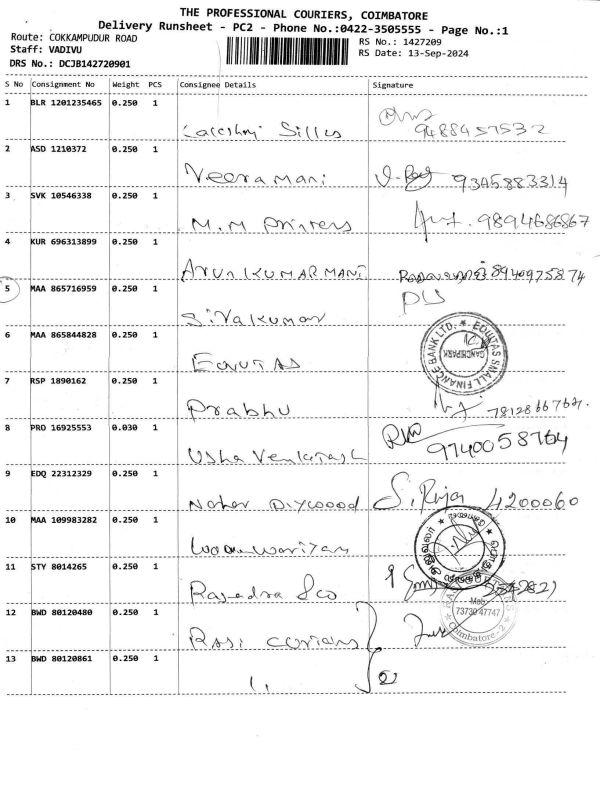 THE PROFESSIONAL COURIERS, COIMBATORE
Delivery Runsheet - PC2 - Phone No.:0422-3505555 - Page No.:1
Route: COKKAMPUDUR ROAD
RS No.: 1427209
Staff: VADIVU
RS Date: 13-Sep-2024
DRS No.: DCJB142720901
S No Consignment No Weight PCS Consignee Details Signature
1 BLR 1201235465 0.250 1
Lakshmi 9488457532
2 ASD 1210372 0.250 1
Veeramani 9345883314
3 SVK 10546338 0.250 1
M.M Printers 9894686867
4 KUR 696313899 0.250 1
ArunKUMARMANI 8940975874
5 MAA 865716959 0.250 1
Sivakumar
6 MAA 865844828 0.250 1
EQUITAS
EQUITAS SMALL FINANCE BANK LTD.
7 RSP 1890162 0.250 1
Prabhu
8 PRO 16925553 0.030 1
Usha Venkatesh 9740058764
9 EDQ 22312329 0.250 1
S. Raja 4200060
10 MAA 109983282 0.250 1
11 STY 8014265 0.250 1
Rajendra &co
12 BWD 80120480 0.250 1
Mob
73730 47747
Coimbatore-2
13 BWD 80120861 0.250 1